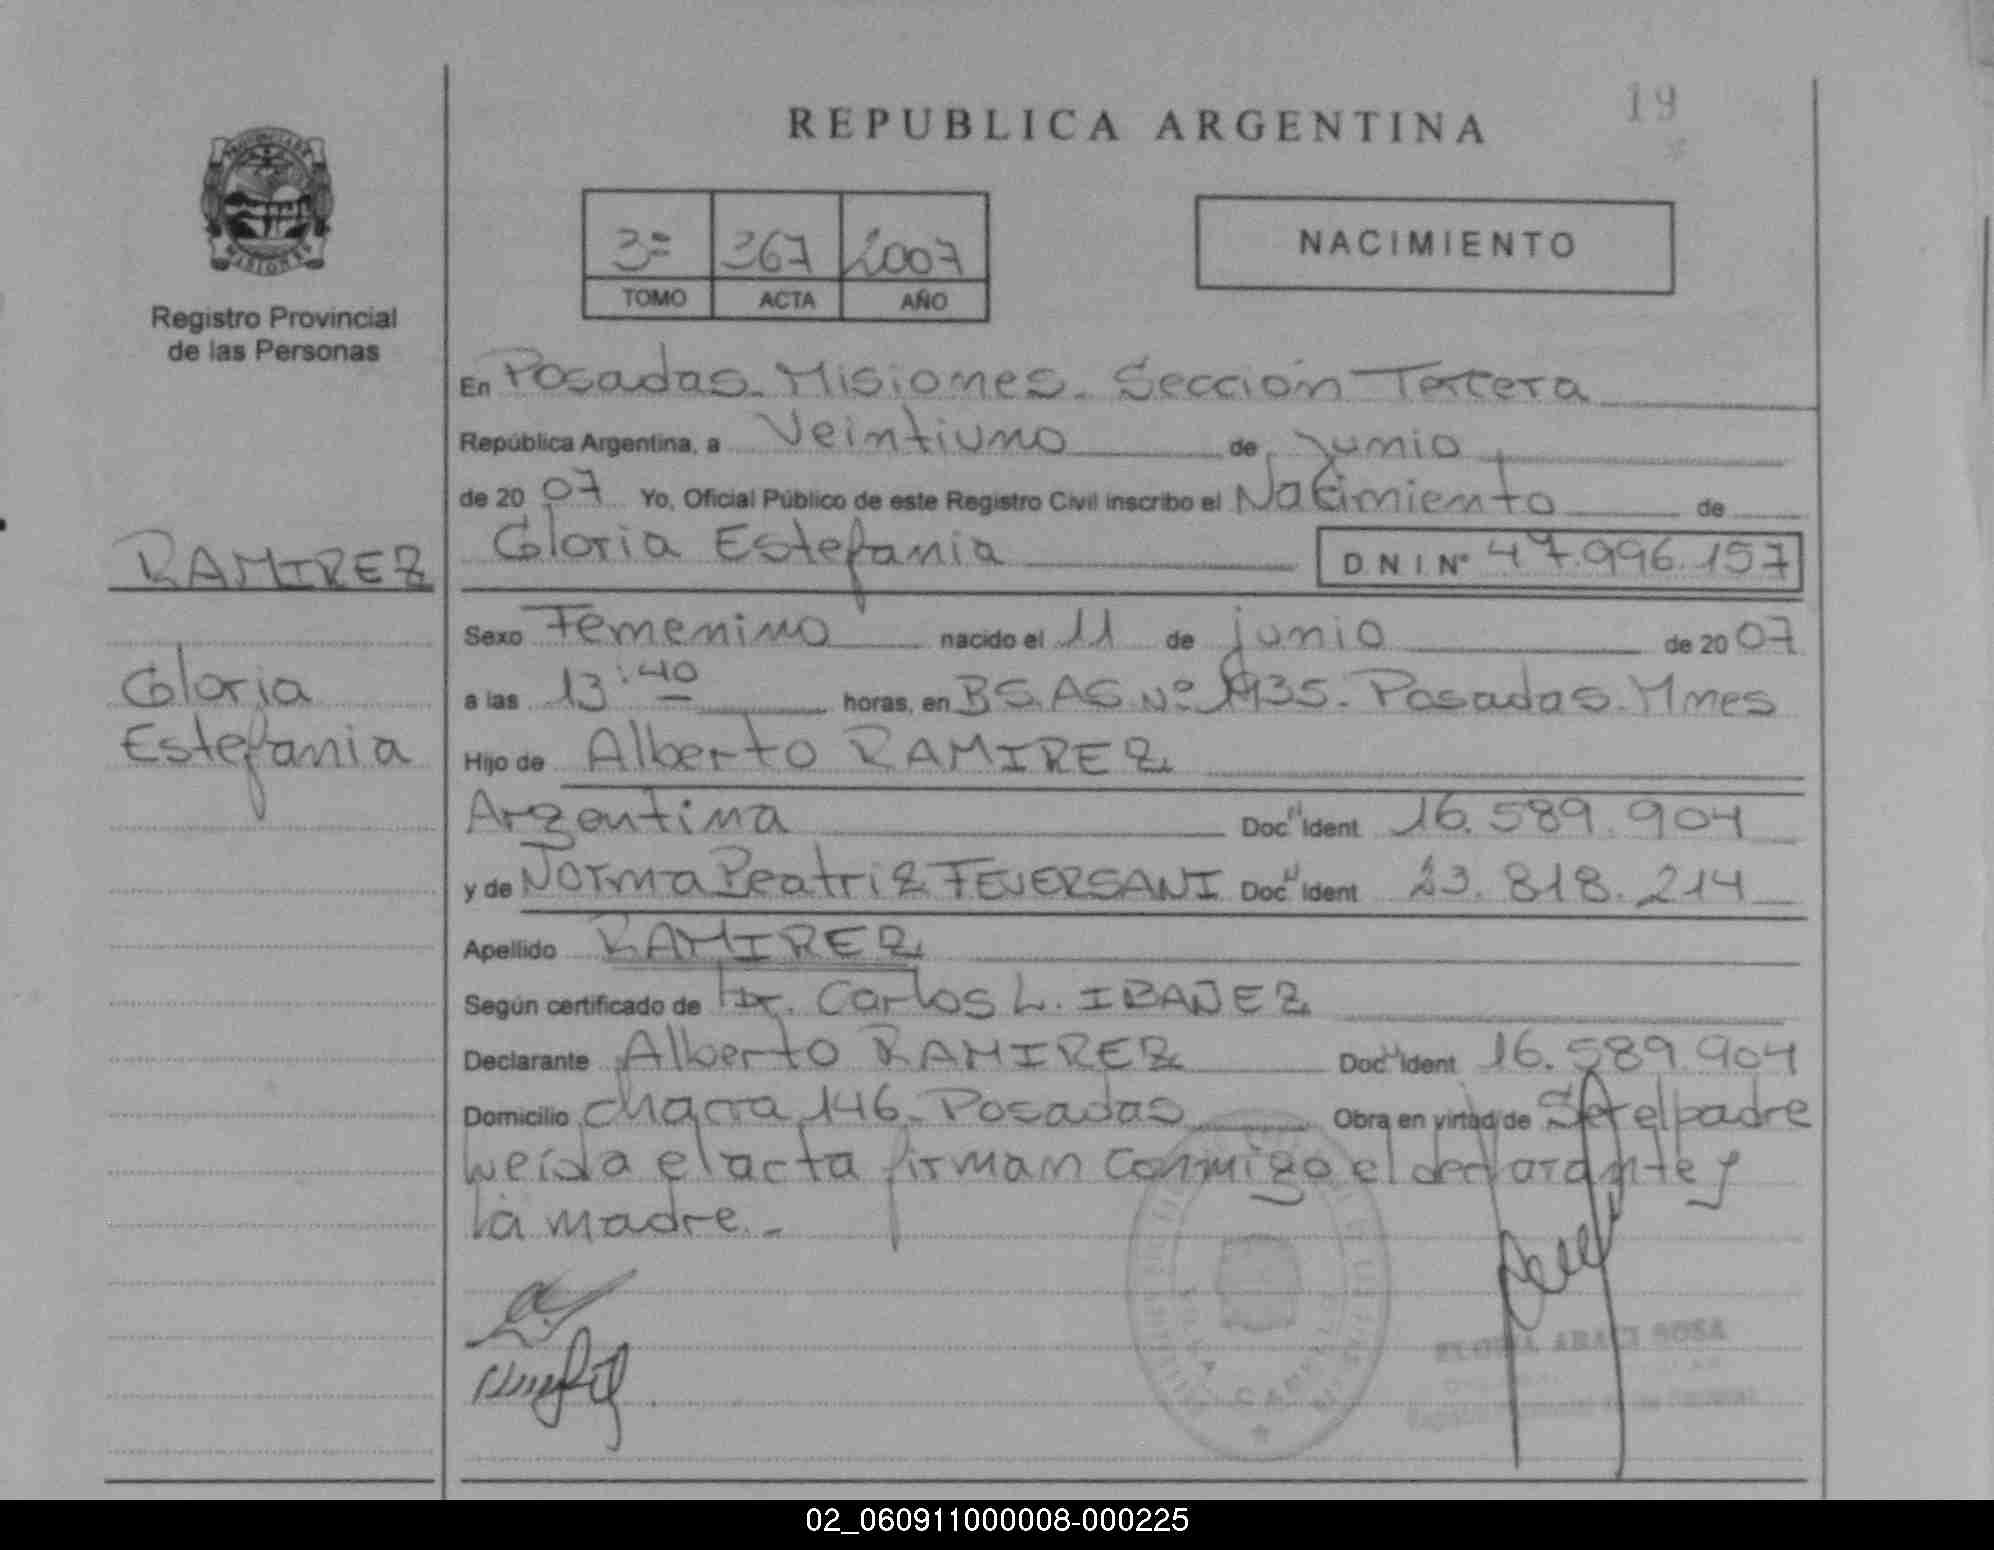 19
REPUBLICA ARGENTINA
PROVINCIA DE
MISIONES
Registro Provincial
de las Personas
3= 367 2007
TOMO ACTA AÑO
NACIMIENTO
En Posadas. Misiones. Sección Tercera
República Argentina, a Veintiuno de junio
de 20 07 Yo, Oficial Público de este Registro Civil inscribo el Nacimiento de
RAMIREZ
Gloria Estefania D N I Nº 47.996.157
Sexo Femenino nacido el 11 de junio de 20 07
Gloria
Estefania
a las 13:40 horas, en BS.AS.Nº 1935. Posadas. Mnes
Hijo de Alberto RAMIREZ
Argentina Doc Ident 16.589.904
y de Norma Beatriz FEVERSANI Doc Ident 23.818.214
Apellido RAMIREZ
Según certificado de Dr. Carlos L. IBAÑEZ
Declarante Alberto RAMIREZ Doc Ident 16.589.904
Domicilio chacra 146. Posadas Obra en virtud de Ser el padre
Leída el acta firman conmigo el declarante y
la madre.-
ARACI SOSA
02_060911000008-000225